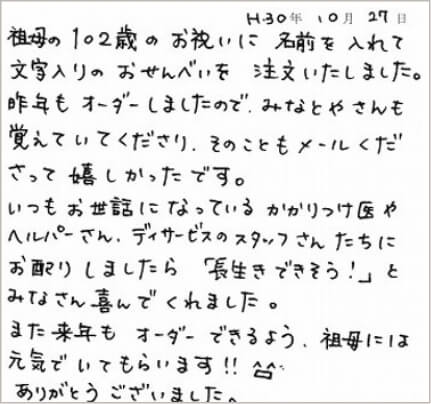 H.30年 10月 27日
祖母の102歳のお祝いに 名前を入れて
文字入りの おせんべいを 注文いたしました。
昨年も オーダーしましたので、みなとやさんも
覚えていてくださり、そのこともメールくだ
さって 嬉しかったです。
いつもお世話になっている かかりつけ医や
ヘルパーさん、デイサービスのスタッフさん たちに
お配りしましたら 「長生きできそう!」と
みなさん喜んでくれました。
また来年も オーダーできるよう、祖母には
元気でいてもらいます!! ^^
ありがとうございました。